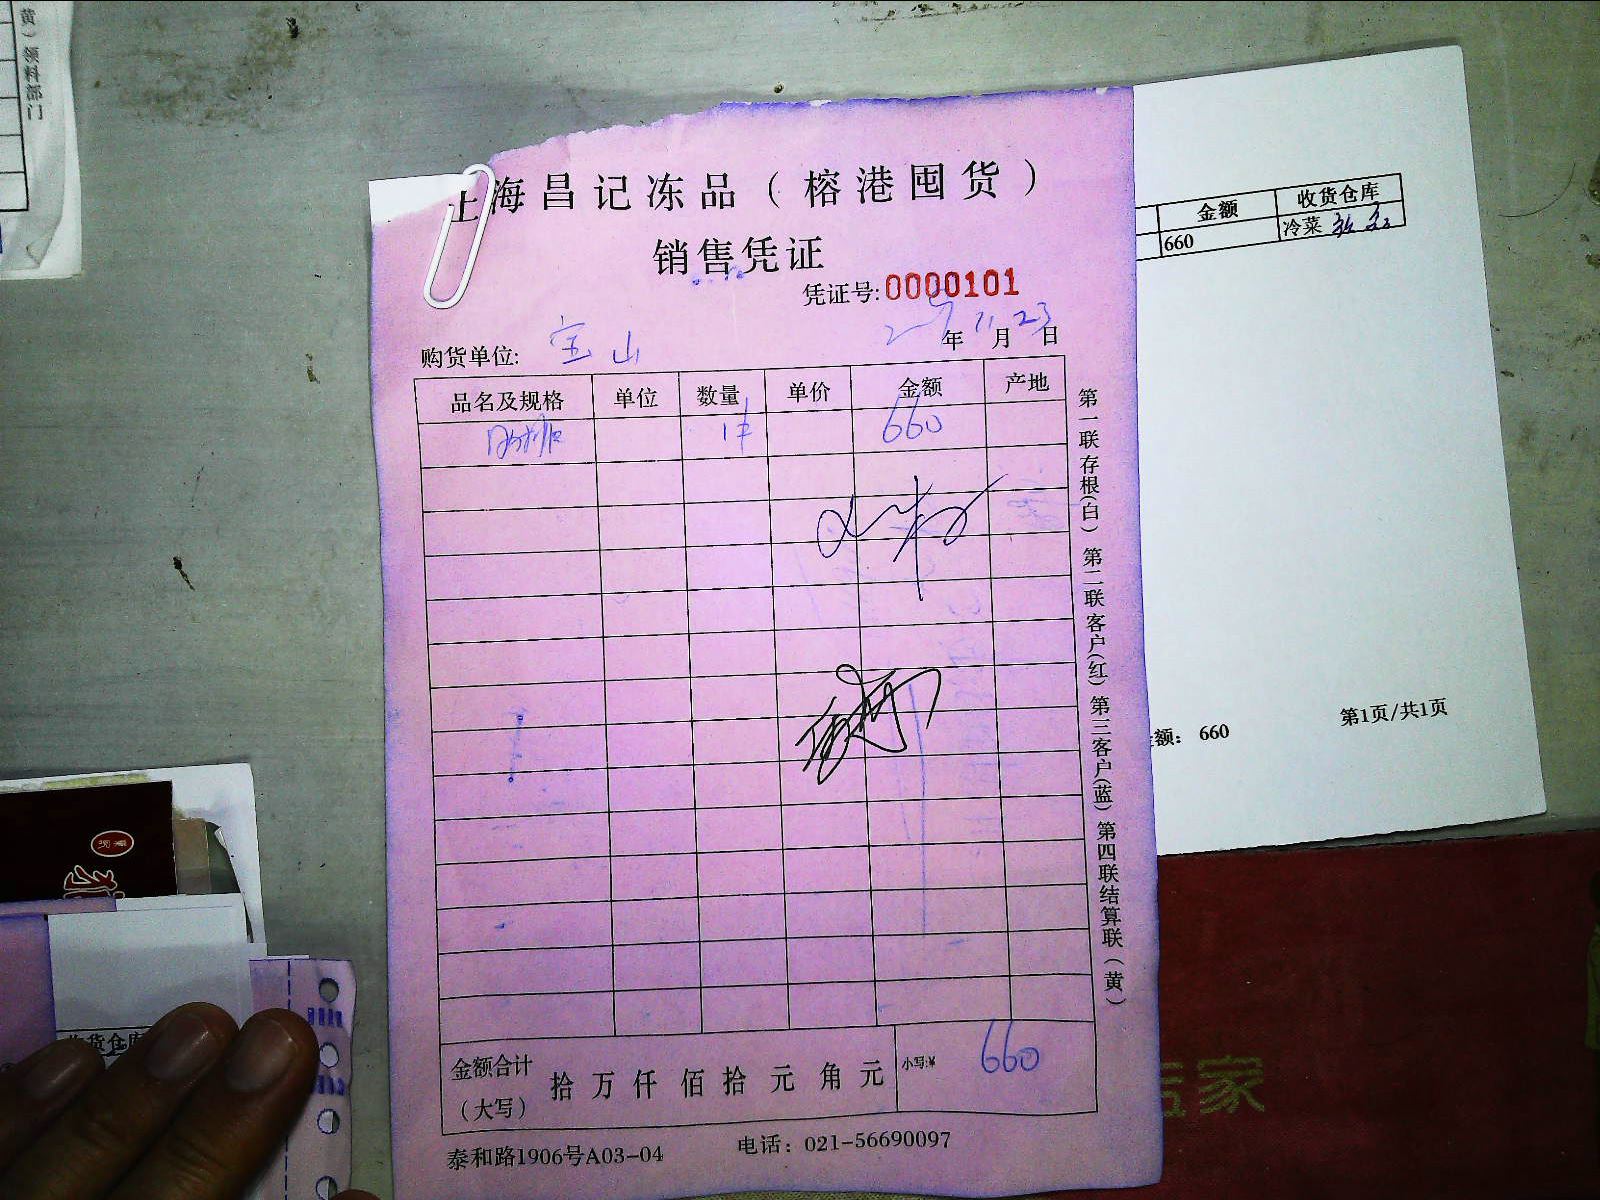 上海昌记冻品（榕港囤货）
销售凭证
凭证号:0000101
购货单位: 宝山
年11月23日
品名及规格 单位 数量 单价 金额 产地
1件 660
金额合计（大写） 拾万仟佰拾元角元 小写:¥ 660
泰和路1906号A03-04 电话：021-56690097
第一联存根(白) 第二联客户(红) 第三客户(蓝) 第四联结算联（黄）
金额 收货仓库
660 冷菜
额： 660 第1页/共1页
黄）领料部门
收货仓库